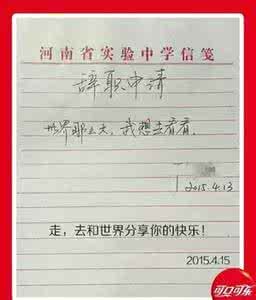 河南省实验中学信笺
辞职申请
世界那么大，我想去看看。
2015.4.13
走，去和世界分享你的快乐！
2015.4.15
可口可乐